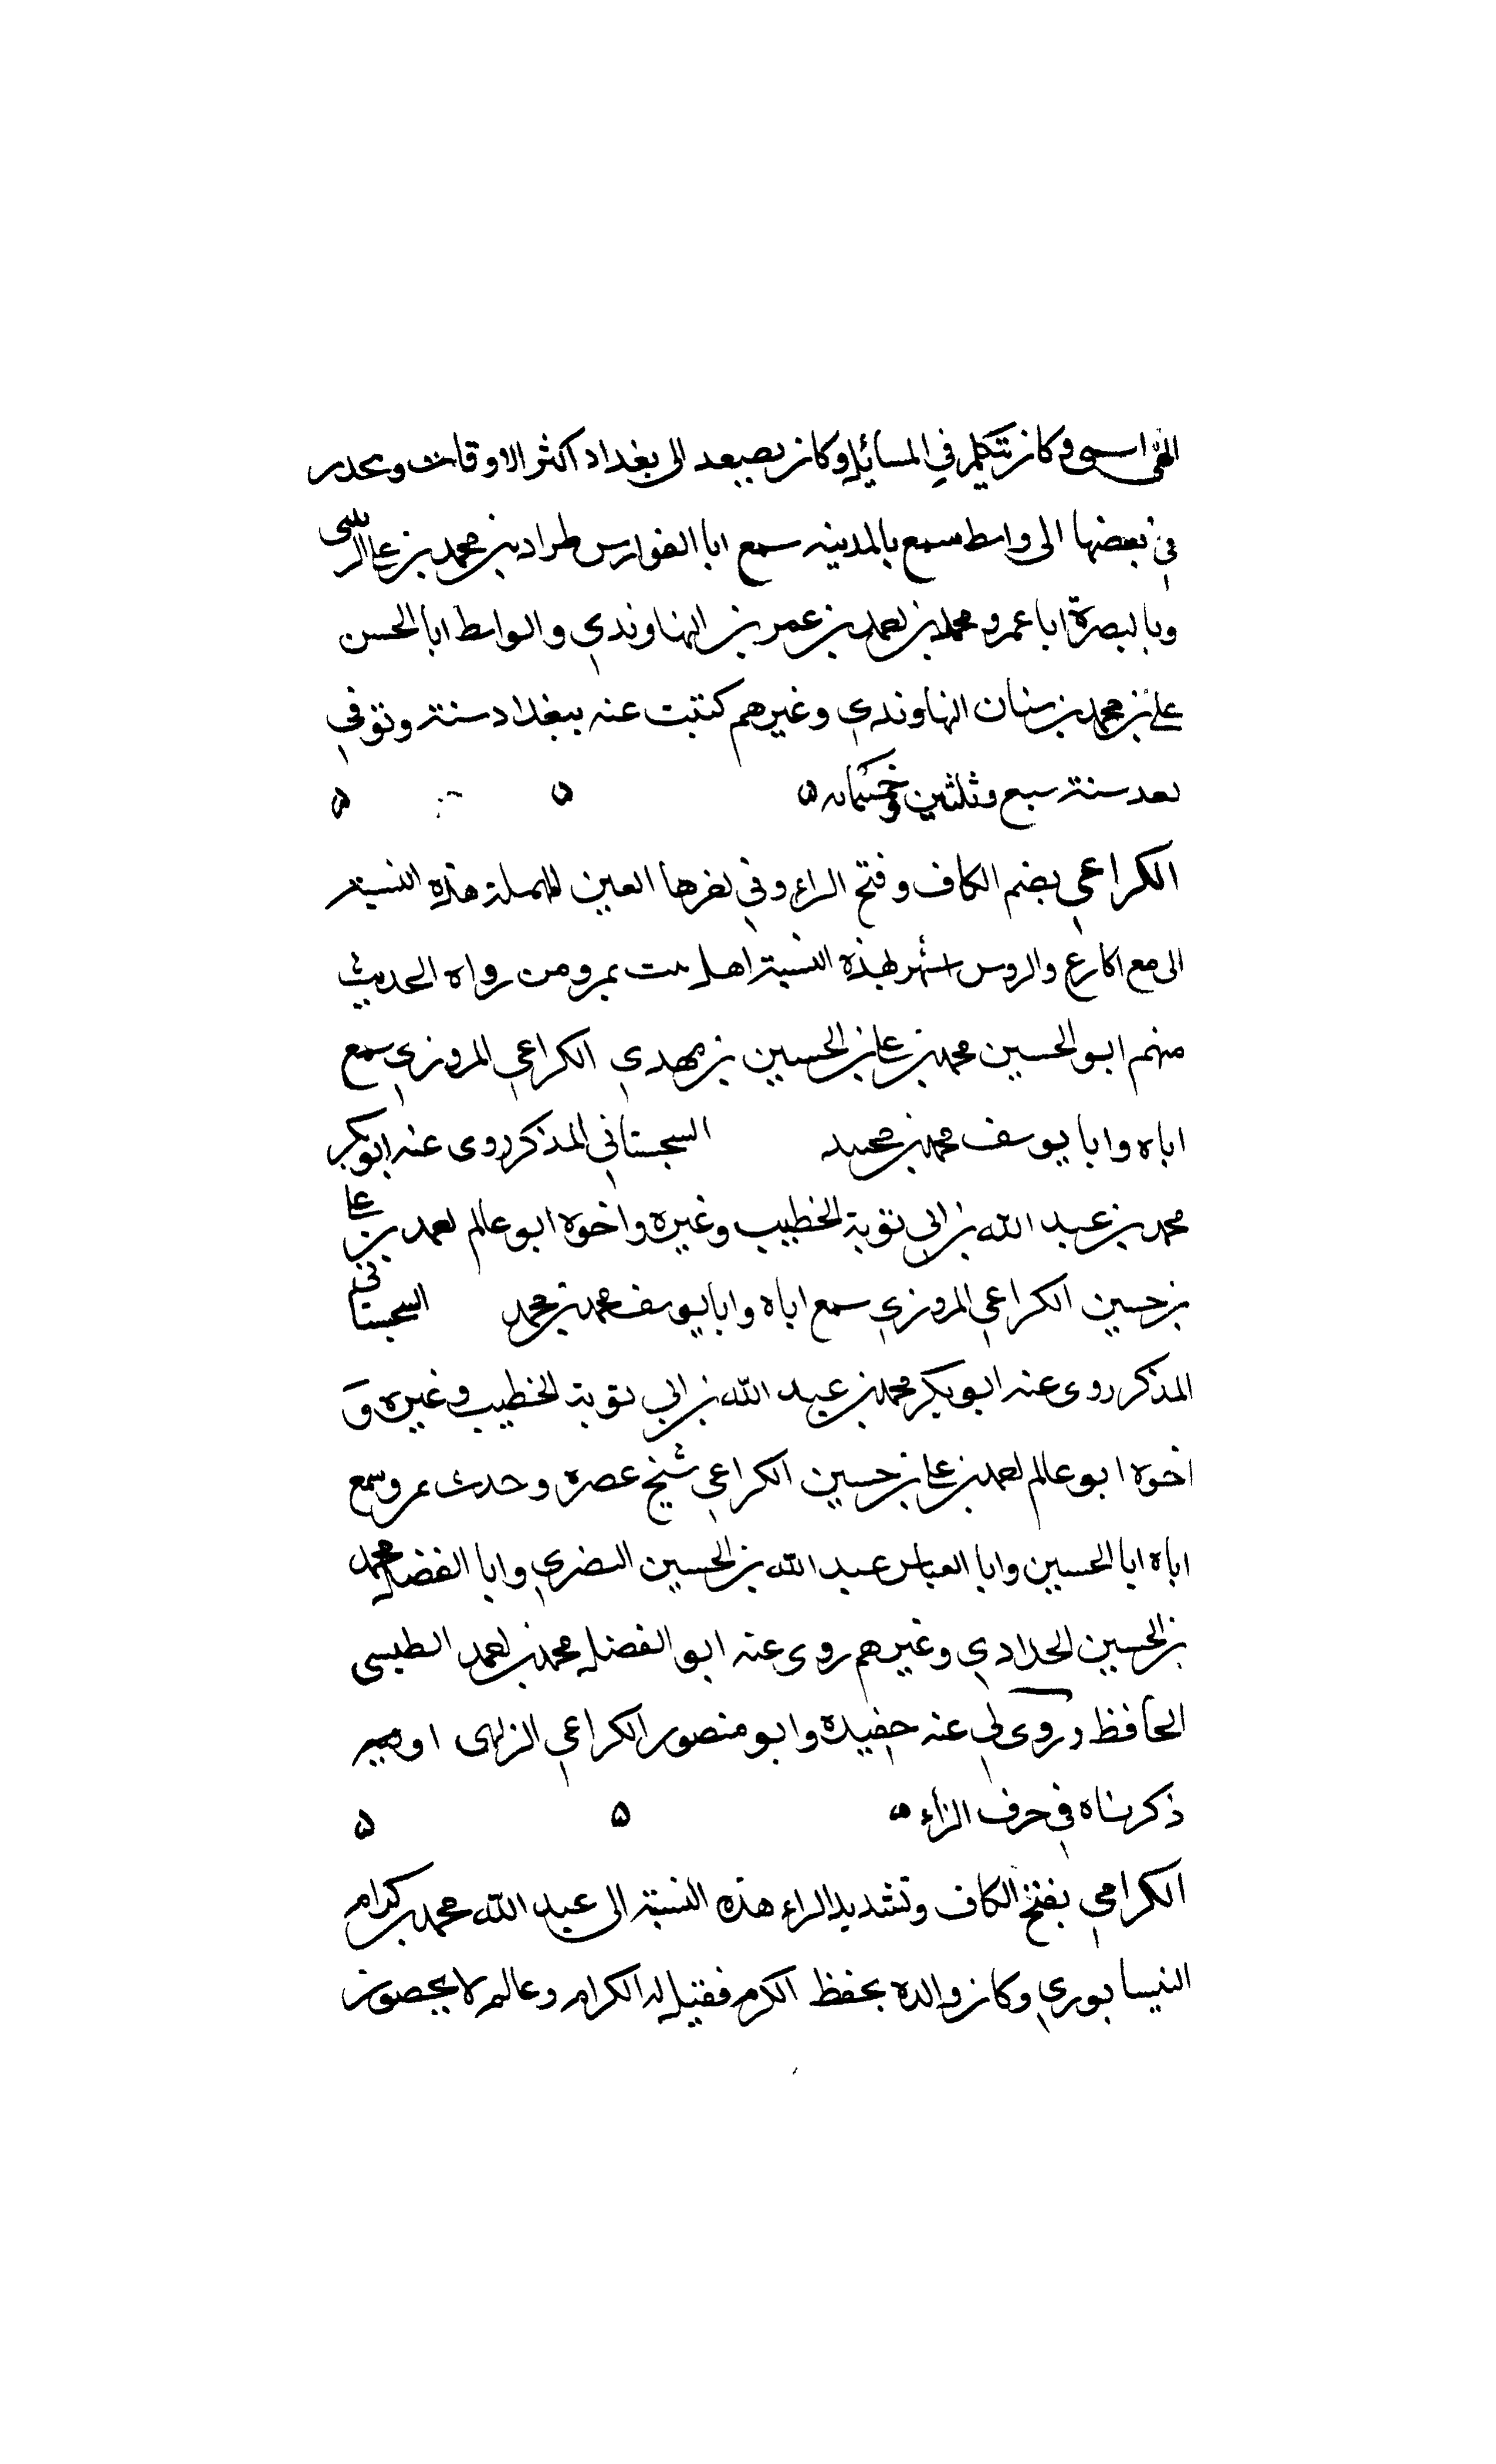 وكان يتكلم في المسائل وكان يصعد الى بغداد اكثر الاوقات وينحدر
في بعضها الى واسط سمع بالمدينه سمع ابا الفوارس طراد بن محمد بن علي
وبالبصرة ابا عمرو محمد بن احمد بن عمر بن النهاوندي والواسط ابا الحسن
علي بن محمد بن سنان النهاوندي وغيرهم كتبت عنه ببغداد سنة وتوفي
بعد سنة سبع وثلثين وخمسمائه ه ه ه
الكراعي بضم الكاف وفتح الراء وفي اخرها العين المهملة هذه النسبة
الى مع اكارع والروس اشتهر بهذه النسبة اهل بيت بمرو من رواه الحديث
منهم ابو الحسين محمد بن علي بن الحسين بن مهدي الكراعي المروزي سمع
اباه وابا يوسف محمد بن السجستاني المذكر روى عنه ابو بكر
محمد بن عبد الله بن ابي توبة الخطيب وغيره واخوه ابو عالم احمد بن علي
بن حسين الكراعي المروزي سمع اباه وابا يوسف محمد بن محمد السجستاني
المذكر روى عنه ابو بكر محمد بن عبد الله بن ابي توبة الخطيب وغيره و
اخوه ابو عالم احمد بن علي بن حسين الكراعي شيخ عصره وحدث بمرو سمع
اباه ابا الحسين وابا العباس عبد الله بن الحسين النضري وابا الفضل محمد
بن الحسين الحدادي وغيرهم روى عنه ابو الفضل محمد بن احمد الطبسي
الحافظ وروى لي عنه حفيده وابو منصور الكراعي
ذكرناه في حرف الزاء ه ه ه
الكرامي بفتح الكاف وتشديد الراء هذه النسبة الى عبد الله محمد بن كرام
النيسابوري وكان والده يحفظ الكرم فقيل له الكرام وعالم لا يحصون